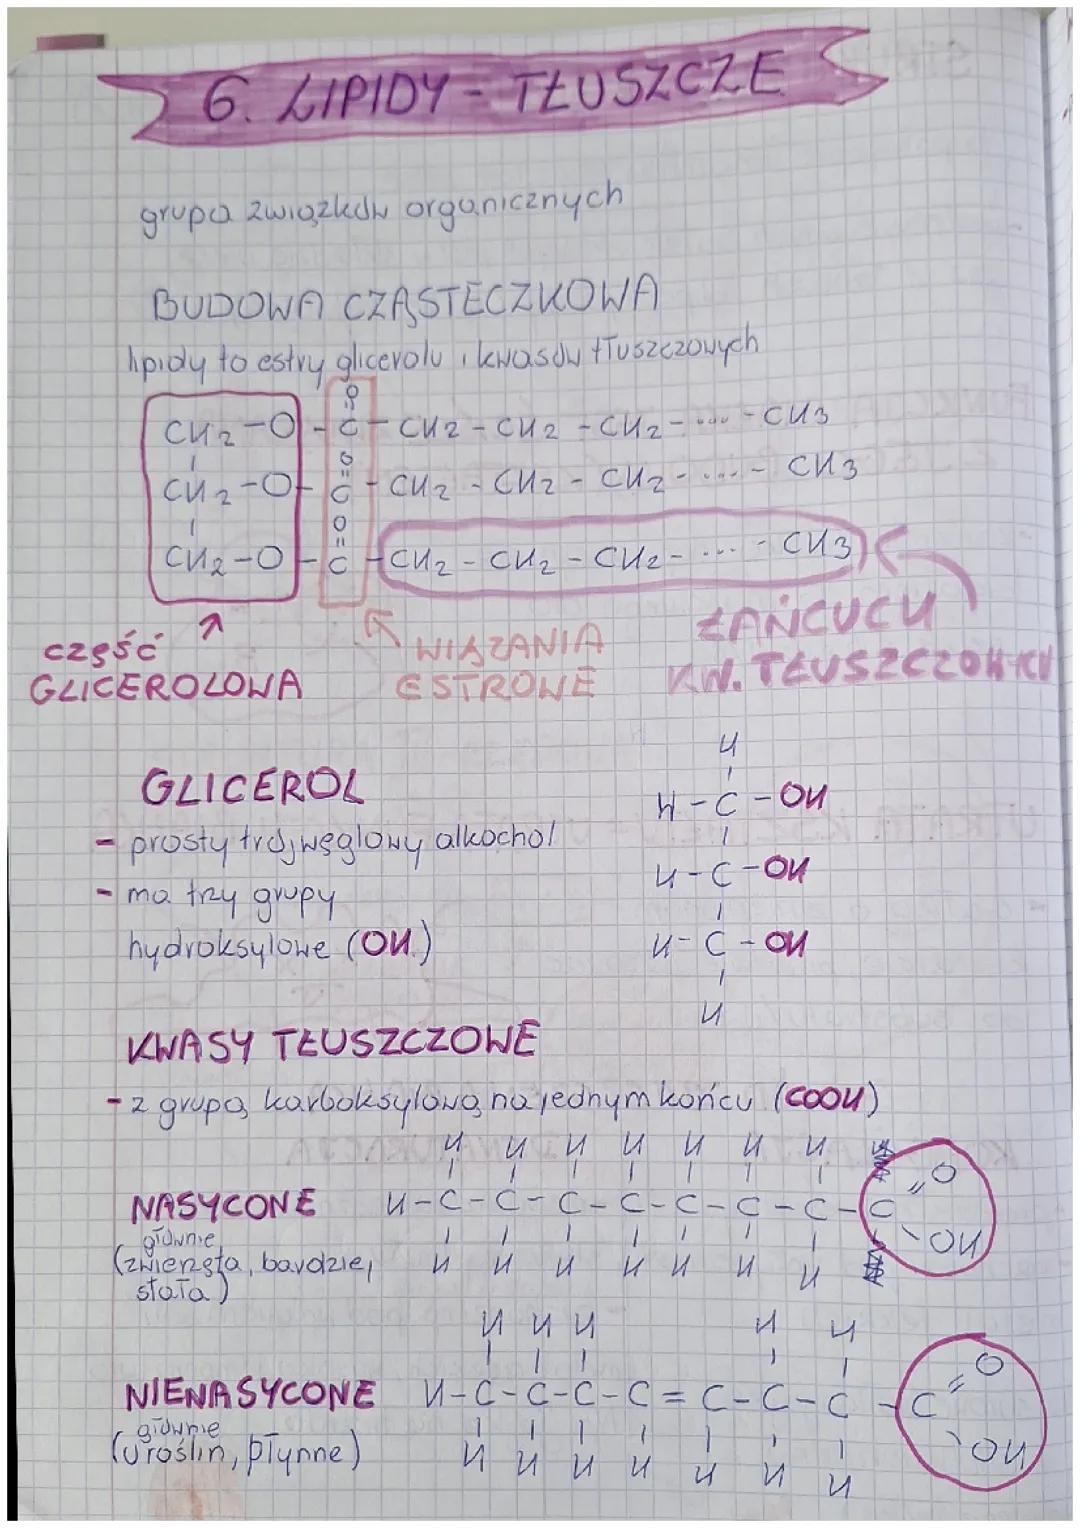 6. LIPIDY - TŁUSZCZE
grupa związków organicznych
BUDOWA CZĄSTECZKOWA
lipidy to estry glicerolu i kwasów tłuszczowych
O O O
CH2-O-C-CH2-CH2-CH2-....-CH3
CH2-O-C-CH2-CH2-CH2-....-CH3
CH2-O-C-CH2-CH2-CH2-....-CH3
część GLICEROLOWA
WIĄZANIA ESTROWE
ŁAŃCUCH
KW. TŁUSZCZOWYCH
GLICEROL
- prosty trójwęglowy alkochol
- ma trzy grupy
hydroksylowe (OH.)
H
H-C-OH
H-C-OH
H-C-OH
H
KWASY TŁUSZCZOWE
- z grupą karboksylową na jednym końcu (COOH)
H H H H H H H
NASYCONE H-C-C-C-C-C-C-C-C=O
-OH
głównie
(zwierzęta, bardziej
stała)
H H H H H H H
H H H H H
NIENASYCONE H-C-C-C-C=C-C-C-C=O
-OH
głównie
(u roślin, płynne)
H H H H H H H